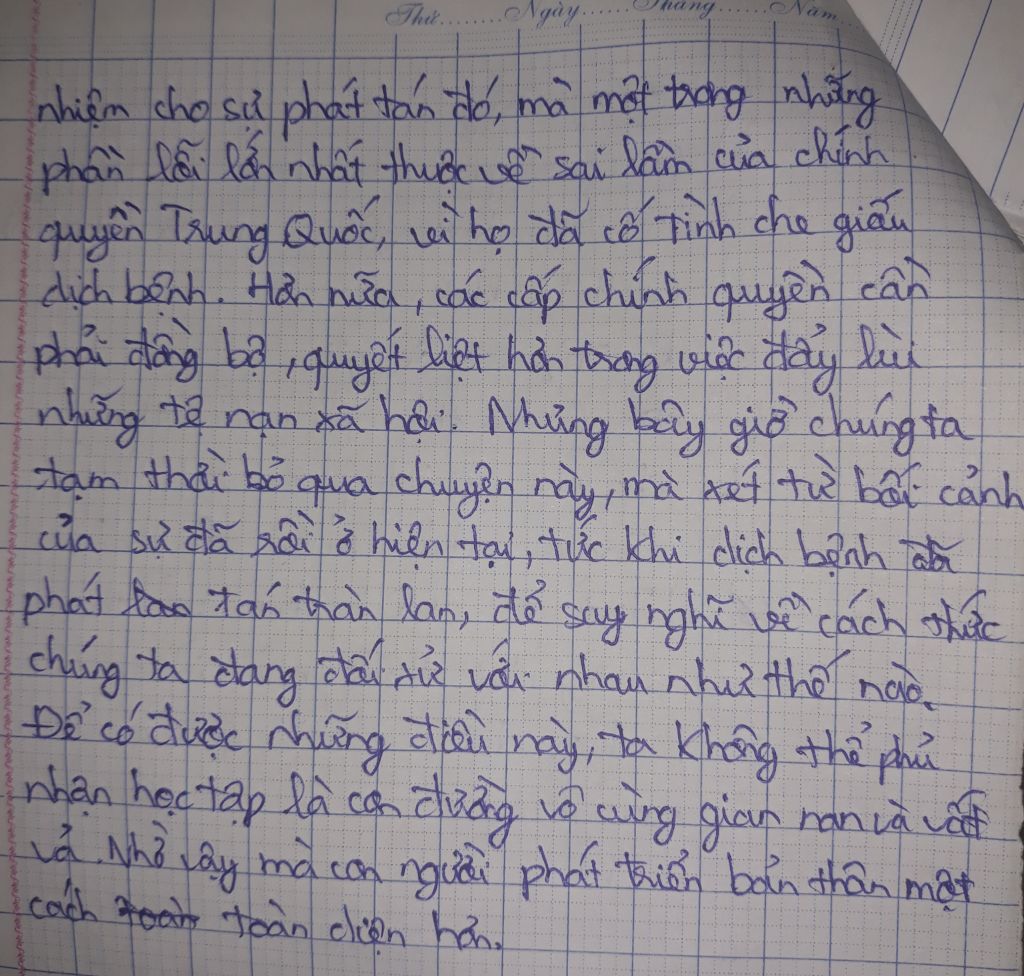 Thứ........Ngày......Tháng......Năm....
nhiệm cho sự phát tán đó, mà một trong những
phần lỗi lớn nhất thuộc về sai lầm của chính
quyền Trung Quốc, vì họ đã cố tình che giấu
dịch bệnh. Hơn nữa, các cấp chính quyền cần
phải đồng bộ, quyết liệt hơn trong việc đẩy lùi
những tệ nạn xã hội. Nhưng bây giờ chúng ta
tạm thời bỏ qua chuyện này, mà xét từ bối cảnh
của sự đã rồi ở hiện tại, tức khi dịch bệnh đã
phát tán tràn lan, để suy nghĩ về cách thức
chúng ta đang đối xử với nhau như thế nào.
Để có được những điều này, ta không thể phủ
nhận học tập là con đường vô cùng gian nan và vất
vả. Nhờ vậy mà con người phát triển bản thân một
cách toàn diện hơn.